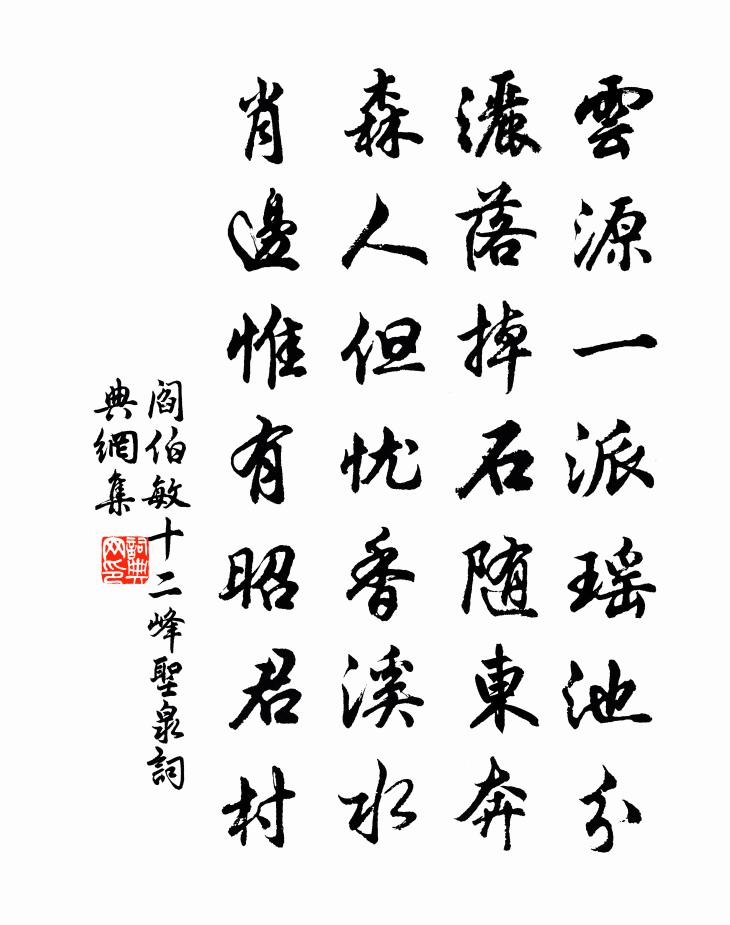 雲源一派瑶池分
灑落掉石随東奔
森人但忧香溪水
肖邊惟有昭君村
閻伯敏十二峰聖泉詞
典網集
詞典网印